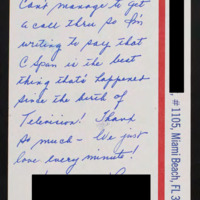 Can't manage to get
a call thru so I'm
writing to say that
C Span is the best
thing that's happened
since the birth of
Television! Thank
so much - We just
love every minute!
# 1105, Miami Beach, FL 3